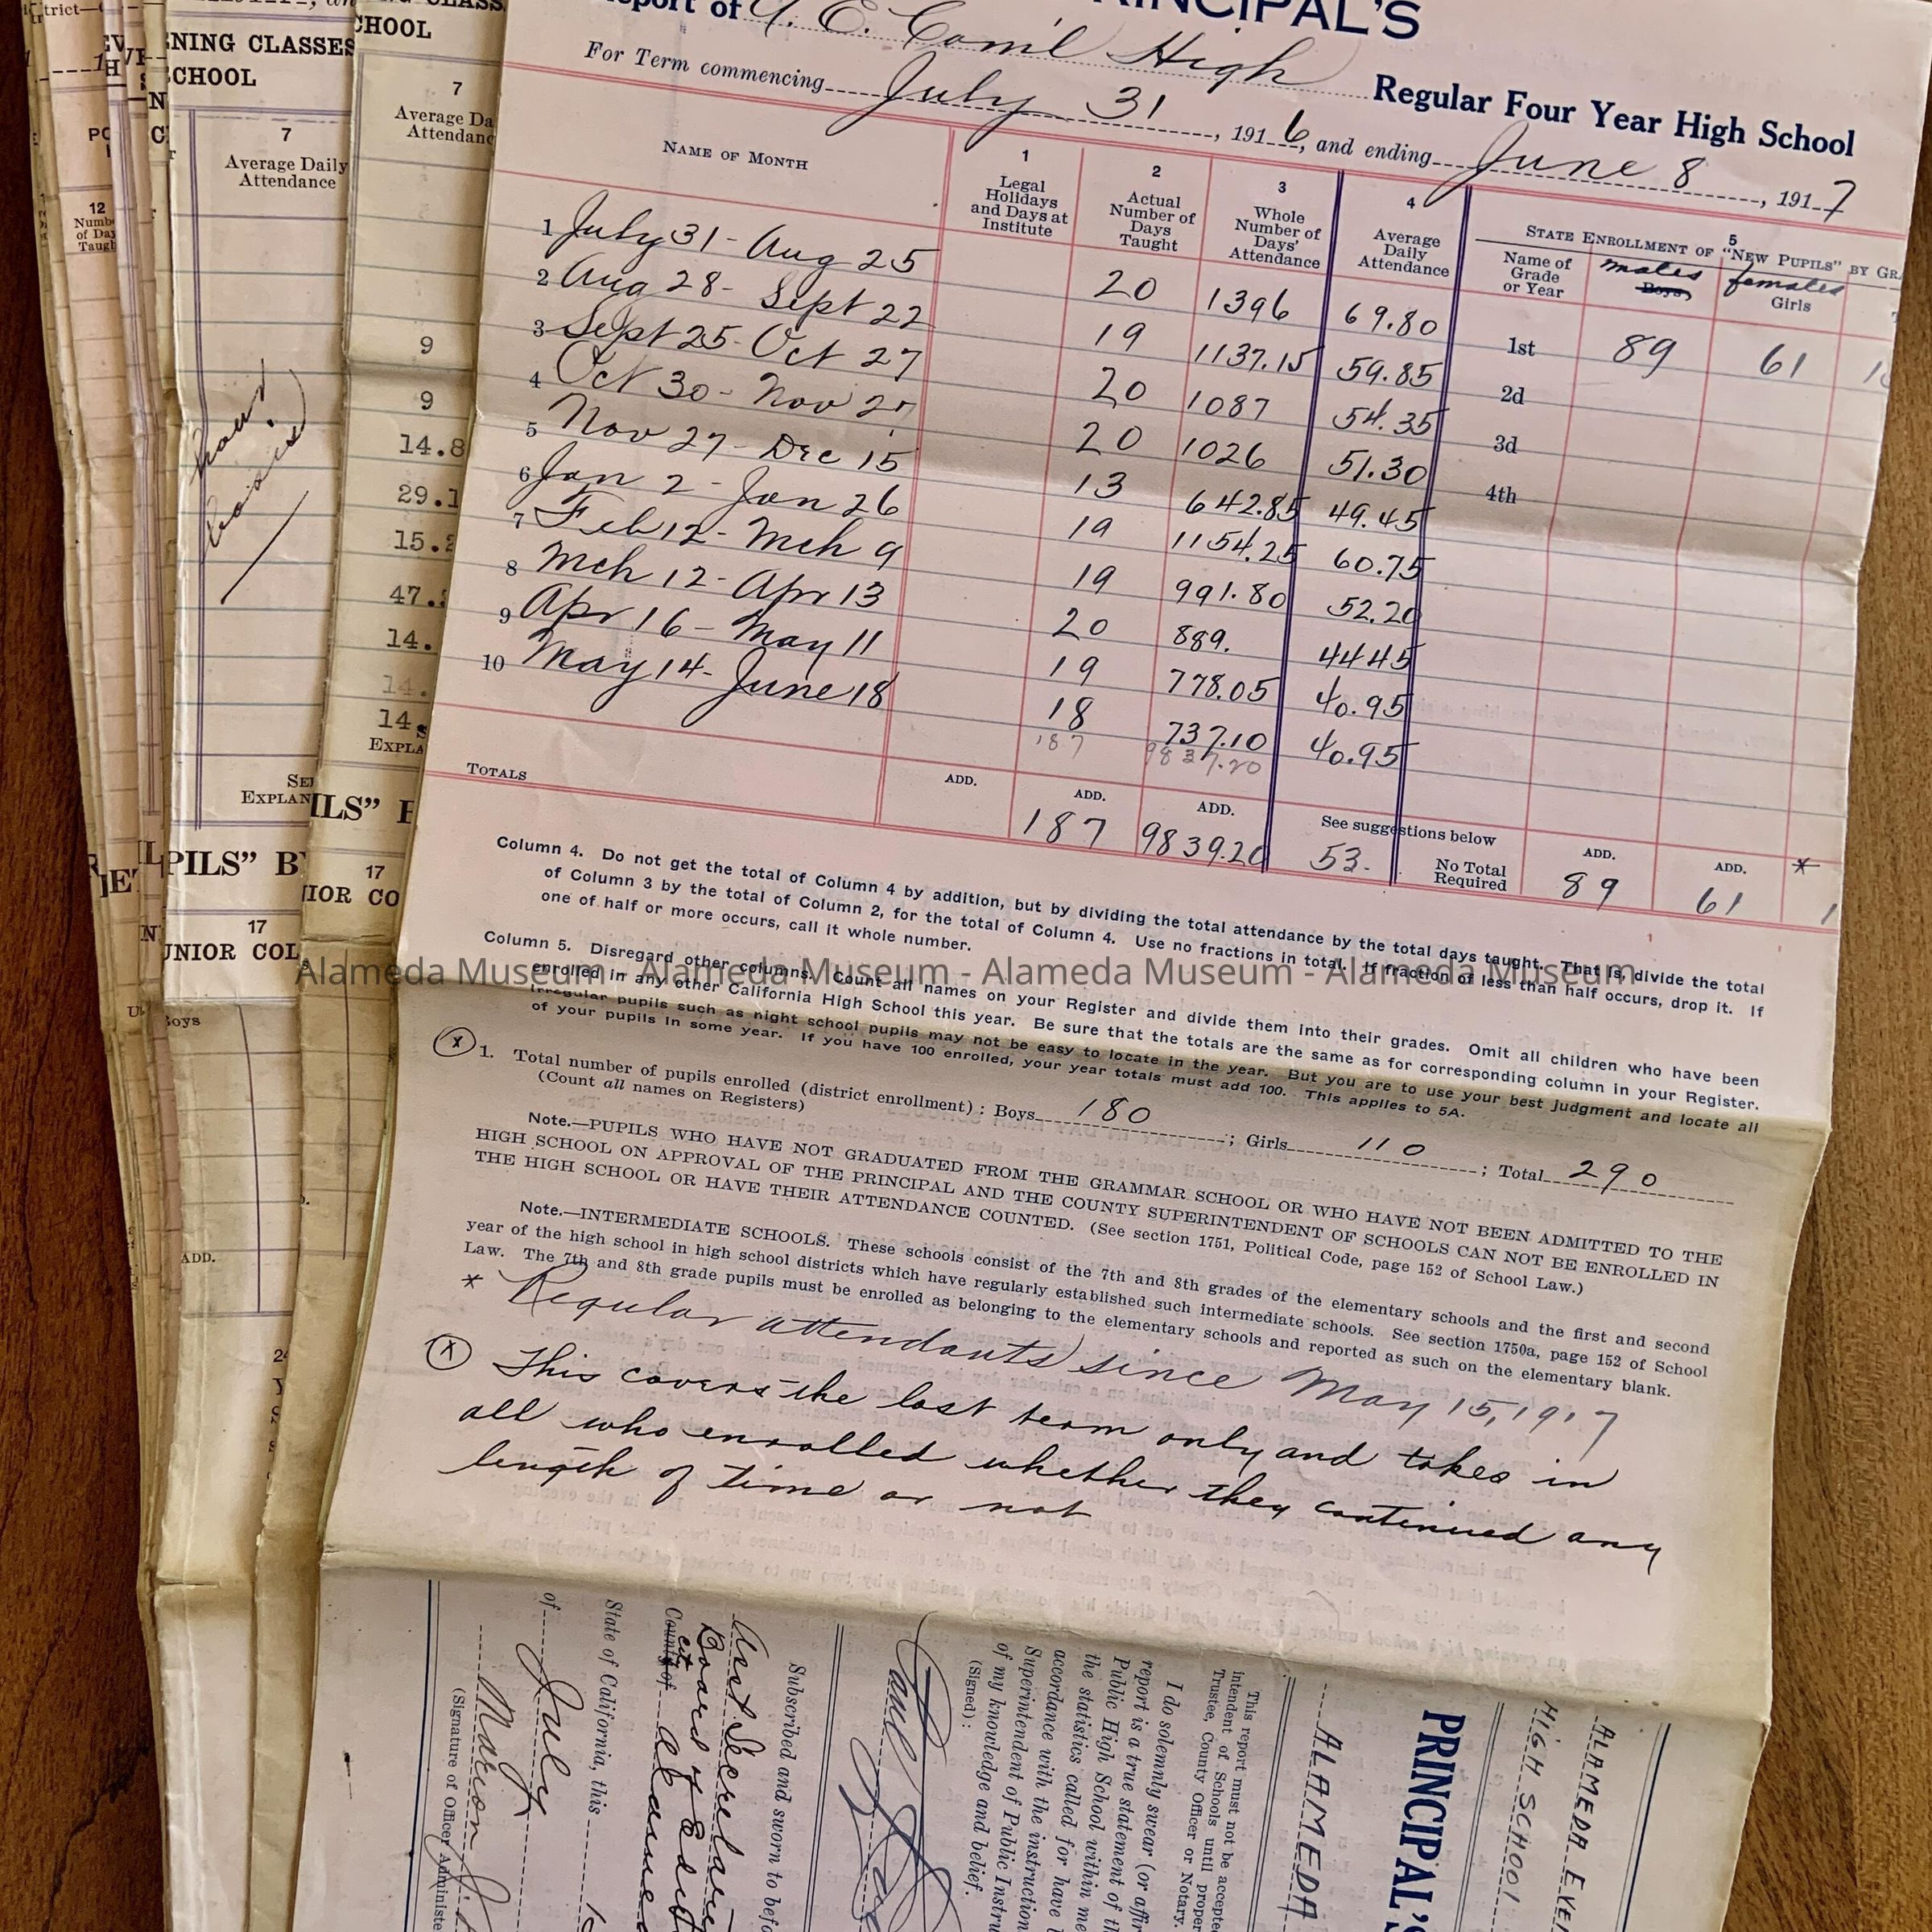 PRINCIPAL'S
Report of A. E. Com'l High Regular Four Year High School
For Term commencing July 31, 1916, and ending June 8, 1917
NAME OF MONTH
1 Legal Holidays and Days at Institute
2 Actual Number of Days Taught
3 Whole Number of Days' Attendance
4 Average Daily Attendance
5 STATE ENROLLMENT OF "NEW PUPILS" BY
Name of Grade or Year
males Boys,
females Girls
1 July 31 - Aug 25 20 1396 69.80
2 Aug 28 - Sept 22 19 1137.15 59.85
3 Sept 25 - Oct 27 20 1087 54.35
4 Oct 30 - Nov 20 1026 51.30
5 Nov 27 - Dec 15 13 642.85 49.45
6 Jan 2 - Jan 26 19 1154.25 60.75
7 Feb 12 - Mch 9 19 991.80 52.20
8 Mch 12 - Apr 13 20 889. 4445
9 Apr 16 - May 11 19 778.05 40.95
10 May 14 - June 18 18 737.10 40.95
187
1st 89 61
2d
3d
4th
TOTALS ADD. ADD. ADD. See suggestions below No Total Required ADD. ADD. *
187 9839.20 53- 89 61
Column 4. Do not get the total of Column 4 by addition, but by dividing the total attendance by the total days taught. That is, divide the total
of Column 3 by the total of Column 2, for the total of Column 4. Use no fractions in total. If fraction of less than half occurs, drop it. If
one of half or more occurs, call it whole number.
Column 5. Disregard other columns. Count all names on your Register and divide them into their grades. Omit all children who have been
enrolled in any other California High School this year. Be sure that the totals are the same as for corresponding column in your Register.
Irregular pupils such as night school pupils may not be easy to locate in the year. But you are to use your best judgment and locate all
of your pupils in some year. If you have 100 enrolled, your year totals must add 100. This applies to 5A.
Alameda Museum - Alameda Museum - Alameda Museum - Alameda Museum
(x) 1. Total number of pupils enrolled (district enrollment): Boys 180; Girls 110; Total 290
(Count all names on Registers)
Note.—PUPILS WHO HAVE NOT GRADUATED FROM THE GRAMMAR SCHOOL OR WHO HAVE NOT BEEN ADMITTED TO THE
HIGH SCHOOL ON APPROVAL OF THE PRINCIPAL AND THE COUNTY SUPERINTENDENT OF SCHOOLS CAN NOT BE ENROLLED IN
THE HIGH SCHOOL OR HAVE THEIR ATTENDANCE COUNTED. (See section 1751, Political Code, page 152 of School Law.)
Note.—INTERMEDIATE SCHOOLS. These schools consist of the 7th and 8th grades of the elementary schools and the first and second
year of the high school in high school districts which have regularly established such intermediate schools. See section 1750a, page 152 of School
Law. The 7th and 8th grade pupils must be enrolled as belonging to the elementary schools and reported as such on the elementary blank.
* Regular attendants since May 15, 1917
(x) This covers the last term only and takes in
all who enrolled whether they continued any
length of time or not
ALAMEDA EVEN
HIGH SCHOOL
PRINCIPAL'S
ALAMEDA
This report must not be accepted
intendent of Schools until proper
Trustee, County Officer or Notary.
I do solemnly swear (or affir
report is a true statement of th
Public High School within me
the statistics called for have b
accordance with the instruction
Superintendent of Public Instru
of my knowledge and belief.
(Signed):
Subscribed and sworn to befo
Asst. Secretary
Board of Edu
City County of Alameda
State of California, this
of July
Marion
(Signature of Officer Administe
ENING CLASSES
SCHOOL
7
Average Daily
Attendance
PILS" B
17
UNIOR COL
Boys
ADD.
CHOOL
7
Average Da
Attendanc
9
9
14.8
29.1
15.2
47.
14.
14.
14.
EXPLA
ILS"
17
IOR CO
12
Numb
of Day
Taugh